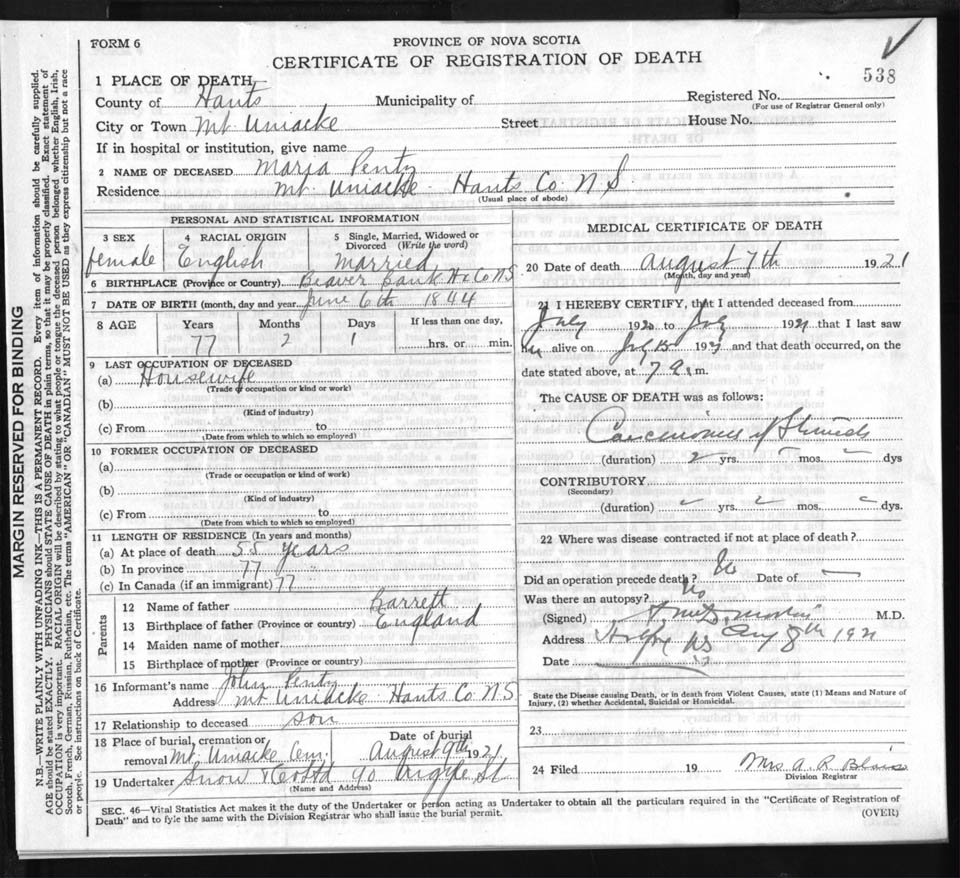 FORM 6
PROVINCE OF NOVA SCOTIA
CERTIFICATE OF REGISTRATION OF DEATH
538
1 PLACE OF DEATH
County of Hants Municipality of Registered No.
(For use of Registrar General only)
City or Town Mt. Uniacke Street House No.
If in hospital or institution, give name
2 NAME OF DECEASED Maria Penty
Residence Mt Uniacke Hants Co. N S.
(Usual place of abode)
PERSONAL AND STATISTICAL INFORMATION
3 SEX 4 RACIAL ORIGIN 5 Single, Married, Widowed or Divorced (Write the word)
female English Married
6 BIRTHPLACE (Province or Country) Beaver bank Hx Co NS
7 DATE OF BIRTH (month, day and year) June 6th 1844
8 AGE Years Months Days If less than one day,
77 2 1 hrs. or min.
9 LAST OCCUPATION OF DECEASED
(a) Housewife
(Trade or occupation or kind or work)
(b)
(Kind of industry)
(c) From to
(Date from which to which so employed)
10 FORMER OCCUPATION OF DECEASED
(a)
(Trade or occupation or kind of work)
(b)
(Kind of industry)
(c) From to
(Date from which to which so employed)
11 LENGTH OF RESIDENCE (In years and months)
(a) At place of death 55 years
(b) In province 77 "
(c) In Canada (if an immigrant) 77
Parents
12 Name of father Barrett
13 Birthplace of father (Province or country) England
14 Maiden name of mother
15 Birthplace of mother (Province or country)
16 Informant's name John Penty
Address Mt Uniacke Hants Co NS
17 Relationship to deceased son
18 Place of burial, cremation or removal Mt. Uniacke Cem. Date of burial August 9th 1921
19 Undertaker Snow & Co Ltd 90 Argyle St
(Name and Address)
MEDICAL CERTIFICATE OF DEATH
20 Date of death August 7th 1921
(Month, day and year)
21 I HEREBY CERTIFY, that I attended deceased from
July 1920 to July 1921 that I last saw
her alive on July 15 1921 and that death occurred, on the
date stated above, at 7 a.m.
The CAUSE OF DEATH was as follows:
Carcinoma of Stomach
(duration) 2 yrs. mos. dys
CONTRIBUTORY
(Secondary)
(duration) yrs. mos. dys.
22 Where was disease contracted if not at place of death?
Did an operation precede death? No Date of
Was there an autopsy? No
(Signed) M.D.
Address NS Aug 8th 1921
Date
State the Disease causing Death, or in death from Violent Causes, state (1) Means and Nature of
Injury, (2) whether Accidental, Suicidal or Homicidal.
23
24 Filed 19 Mrs A. R.
Division Registrar
SEC. 46—Vital Statistics Act makes it the duty of the Undertaker or person acting as Undertaker to obtain all the particulars required in the "Certificate of Registration of
Death" and to fyle the same with the Division Registrar who shall issue the burial permit.
(OVER)
MARGIN RESERVED FOR BINDING
N.B.—WRITE PLAINLY WITH UNFADING INK—THIS IS A PERMANENT RECORD. Every item of information should be carefully supplied.
AGE should be stated EXACTLY. PHYSICIANS should STATE CAUSE OF DEATH in plain terms, so that it may be properly classified. Exact statement of
OCCUPATION is very important. RACIAL ORIGIN will be described by stating to what people or tongue the deceased person belonged whether English, Irish,
Scotch, French, German, Russian, Ruthenian, etc. The terms "AMERICAN" OR "CANADIAN" MUST NOT BE USED as they express citizenship but not a race
or people. See instructions on back of Certificate.